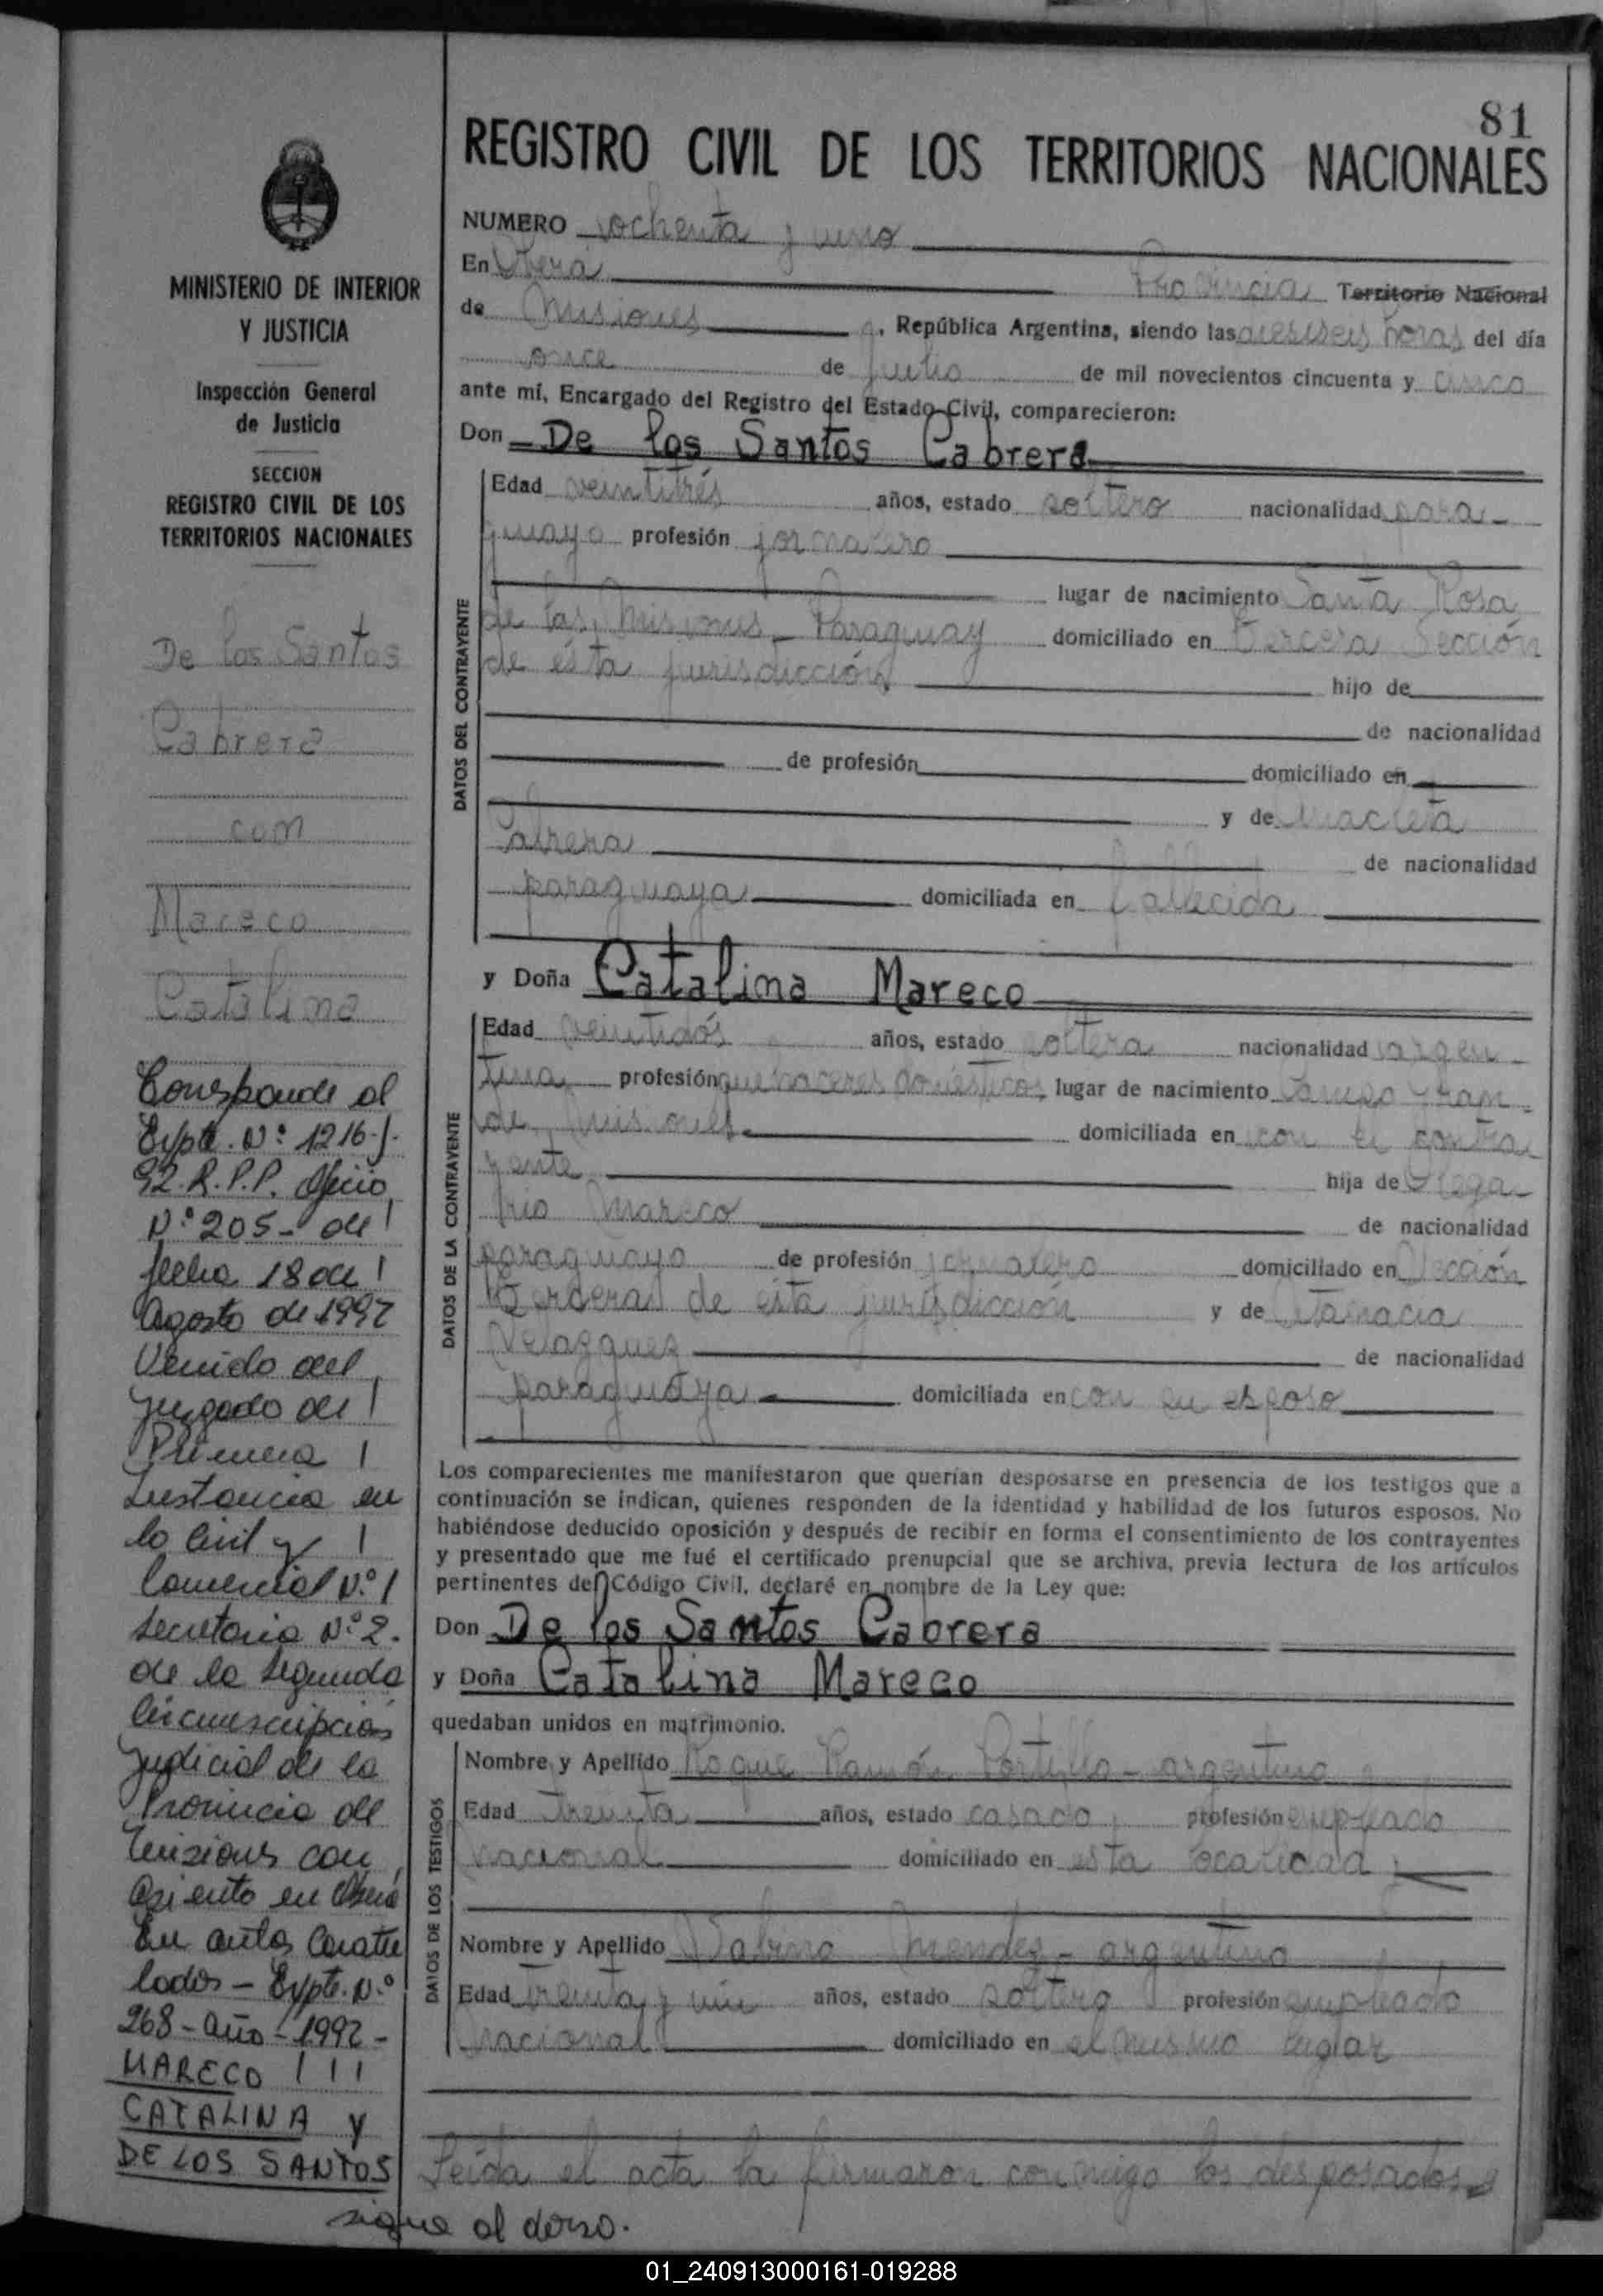 81
REGISTRO CIVIL DE LOS TERRITORIOS NACIONALES
MINISTERIO DE INTERIOR
Y JUSTICIA
Inspección General
de Justicia
SECCION
REGISTRO CIVIL DE LOS
TERRITORIOS NACIONALES
De los Santos
Cabrera
con
Mareco
Catalina
Corresponde al
Expte. Nº 1216-J-
92. R.P.P. Oficio
Nº 205- de
fecha 18 de
Agosto de 1992
Venido del
juzgado de
Primera
Instancia en
lo Civil y
Comercial Nº 1
Secretaria Nº 2.
de la segunda
circunscripción
judicial de la
Provincia de
Misiones con
asiento en Oberá
En autos Caratu
lados - Expte. Nº
268 - año - 1992 -
MARECO
CATALINA y
DE LOS SANTOS
sigue al dorso.
NUMERO ochenta y uno
En Oberá Provincia Territorio Nacional
de Misiones, República Argentina, siendo las dieciseis horas del día
once de Julio de mil novecientos cincuenta y cinco
ante mí, Encargado del Registro del Estado Civil, comparecieron:
Don De los Santos Cabrera
DATOS DEL CONTRAYENTE
Edad veintitrés años, estado soltero nacionalidad para-
guayo profesión jornalero
lugar de nacimiento Santa Rosa
de las Misiones - Paraguay domiciliado en Tercera Sección
de ésta jurisdicción hijo de
de nacionalidad
de profesión domiciliado en
y de Anacleta
Cabrera de nacionalidad
paraguaya domiciliada en fallecida
y Doña Catalina Mareco
DATOS DE LA CONTRAYENTE
Edad veintidós años, estado soltera nacionalidad argen-
tina profesión quehaceres domésticos lugar de nacimiento Campo Gran-
de Misiones domiciliada en con el contra
yente hija de Olega-
rio Mareco de nacionalidad
paraguayo de profesión jornalero domiciliado en Sección
Tercera de ésta jurisdicción y de
Velazquez de nacionalidad
paraguaya domiciliada en con su esposo
Los comparecientes me manifestaron que querían desposarse en presencia de los testigos que a
continuación se indican, quienes responden de la identidad y habilidad de los futuros esposos. No
habiéndose deducido oposición y después de recibir en forma el consentimiento de los contrayentes
y presentado que me fué el certificado prenupcial que se archiva, previa lectura de los artículos
pertinentes del Código Civil, declaré en nombre de la Ley que:
Don De los Santos Cabrera
y Doña Catalina Mareco
quedaban unidos en matrimonio.
DATOS DE LOS TESTIGOS
Nombre y Apellido Roque Ramón Portillo - argentino
Edad treinta años, estado casado profesión empleado
nacional domiciliado en esta localidad
Nombre y Apellido Sabino Mendez - argentino
Edad treinta y un años, estado soltero profesión empleado
nacional domiciliado en el mismo lugar
Leida el acta la firmaron conmigo los desposados y
01_240913000161-019288